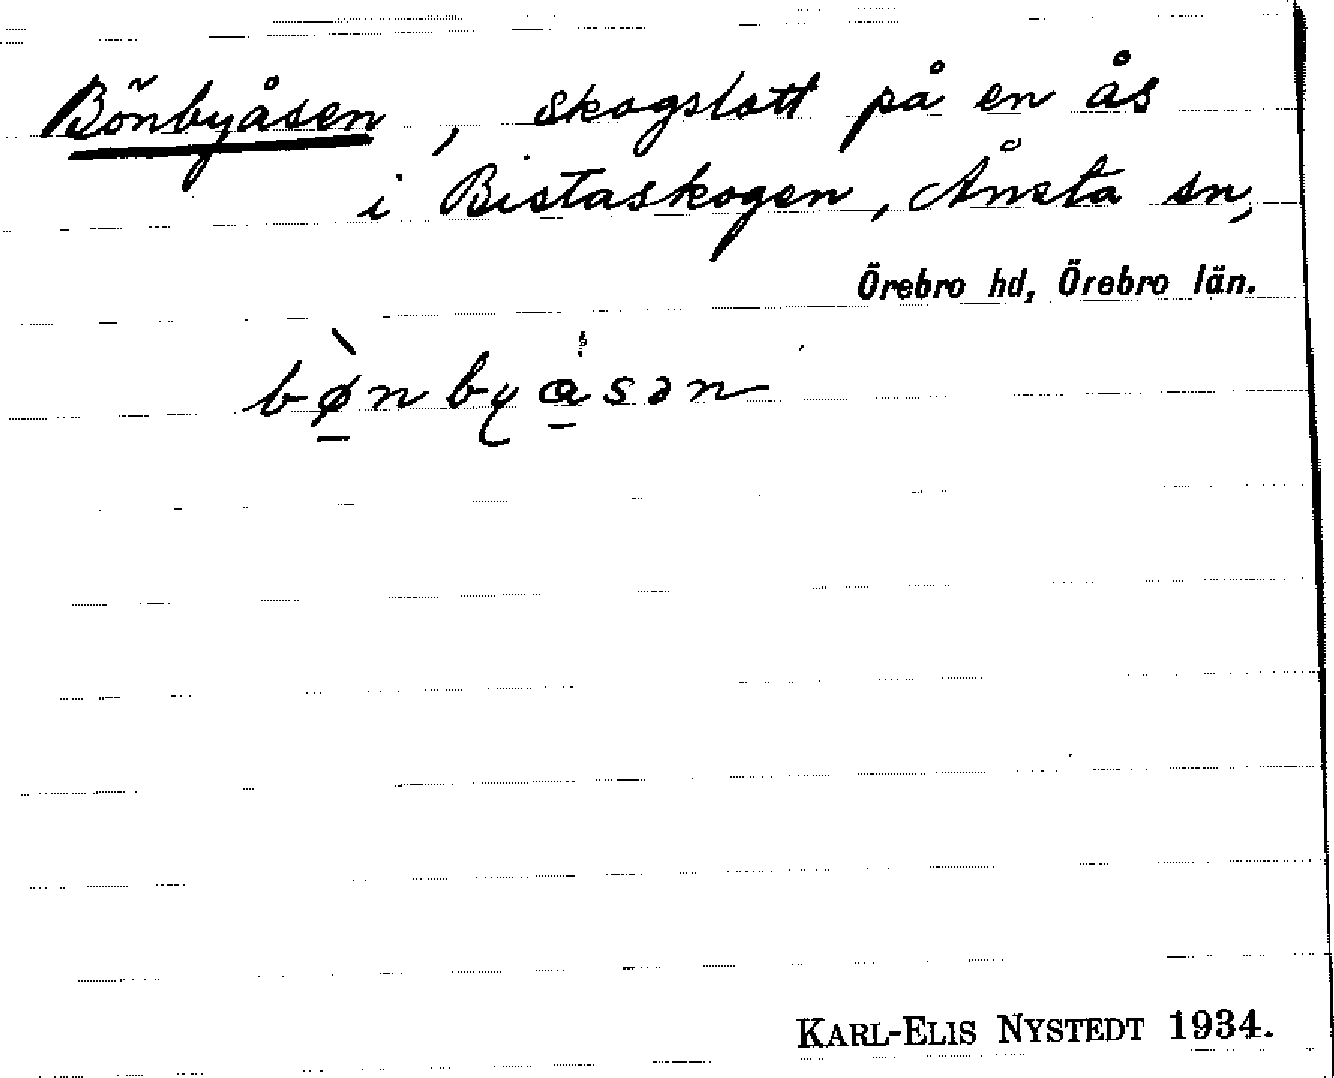 Bönbyåsen, skogslott på en ås
i Bistaskogen, Ånsta sn,
Örebro hd, Örebro län.
bø̱̀nbya̱̍sən
KARL-ELIS NYSTEDT 1934.